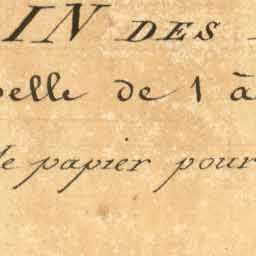 IN DES
pelle de 1 à
le papier pour